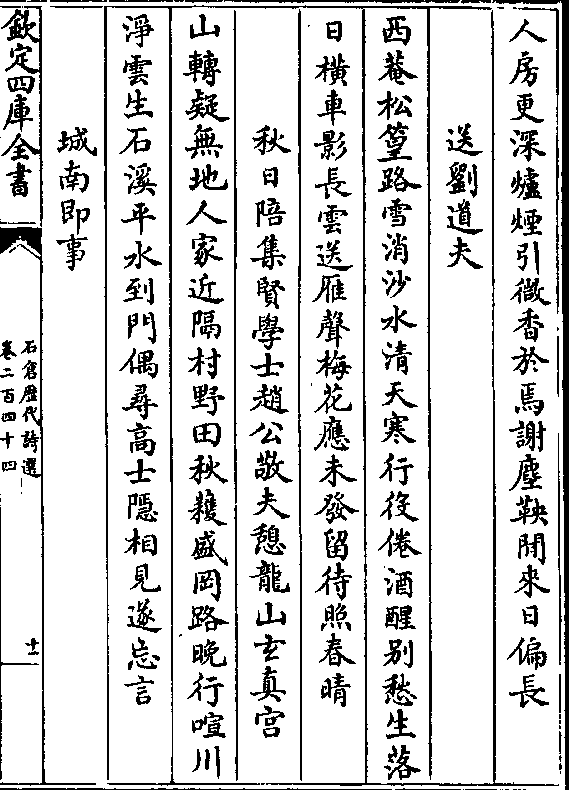 人房更深爐煙引微香於焉謝塵鞅閒來日偏長
送劉道夫
西菴松篁路雪消沙水清天寒行役倦酒醒別愁生落
日橫車影長雲送雁聲梅花應未發留待照春晴
秋日陪集賢學士趙公敬夫憩龍山玄真宮
山轉疑無地人家近隔村野田秋穫盛岡路晚行喧川
淨雲生石溪平水到門偶尋高士隱相見遂忘言
城南即事
欽定四庫全書
石倉歷代詩選
卷二百四十四
十一